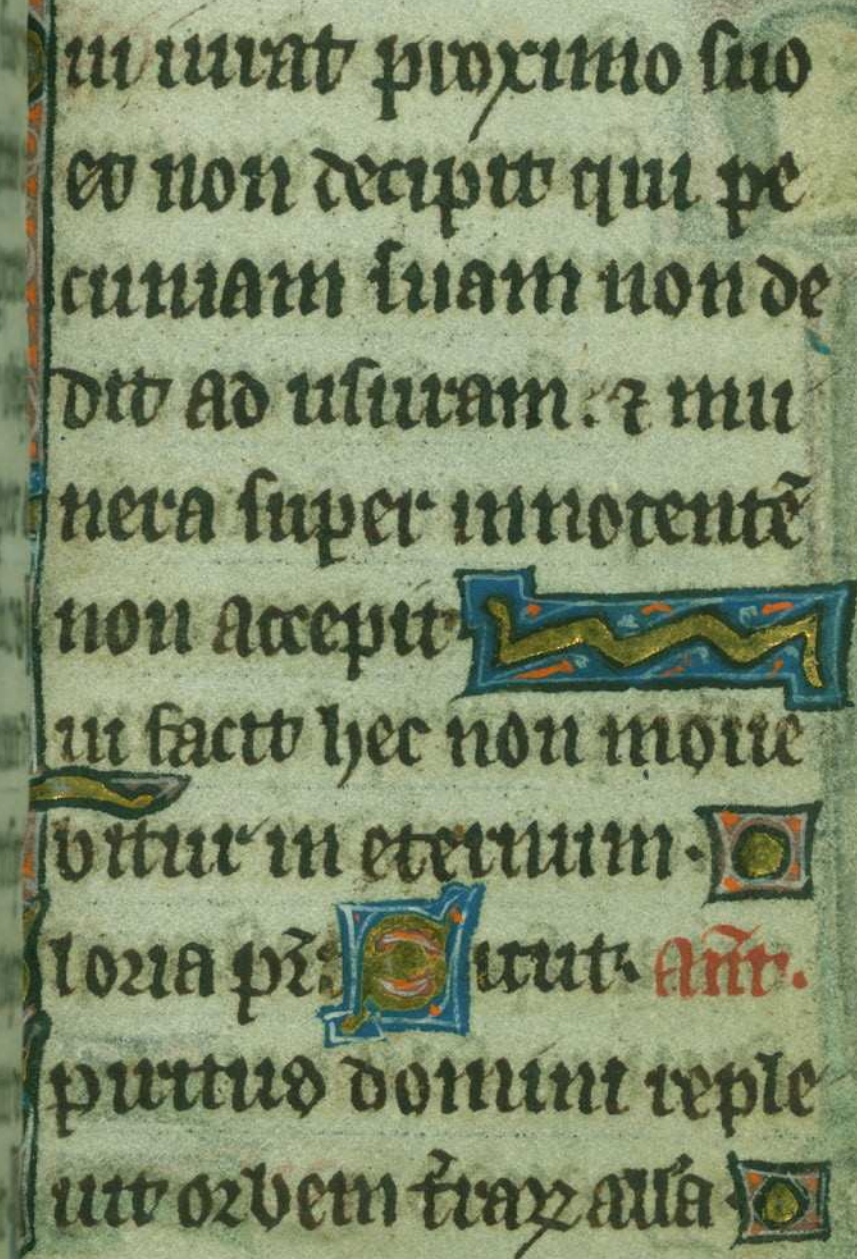 ui iurat proximo suo
et non decipit qui pe
cuniam suam non de
dit ad usuram. ⁊ mu
nera super innocentē
non accepit
ui facit hec non moue
bitur in eternum.
loria pr̄i Sicut. Anr̄.
piritus domini reple
uit orbem t̄raꝝ all'a